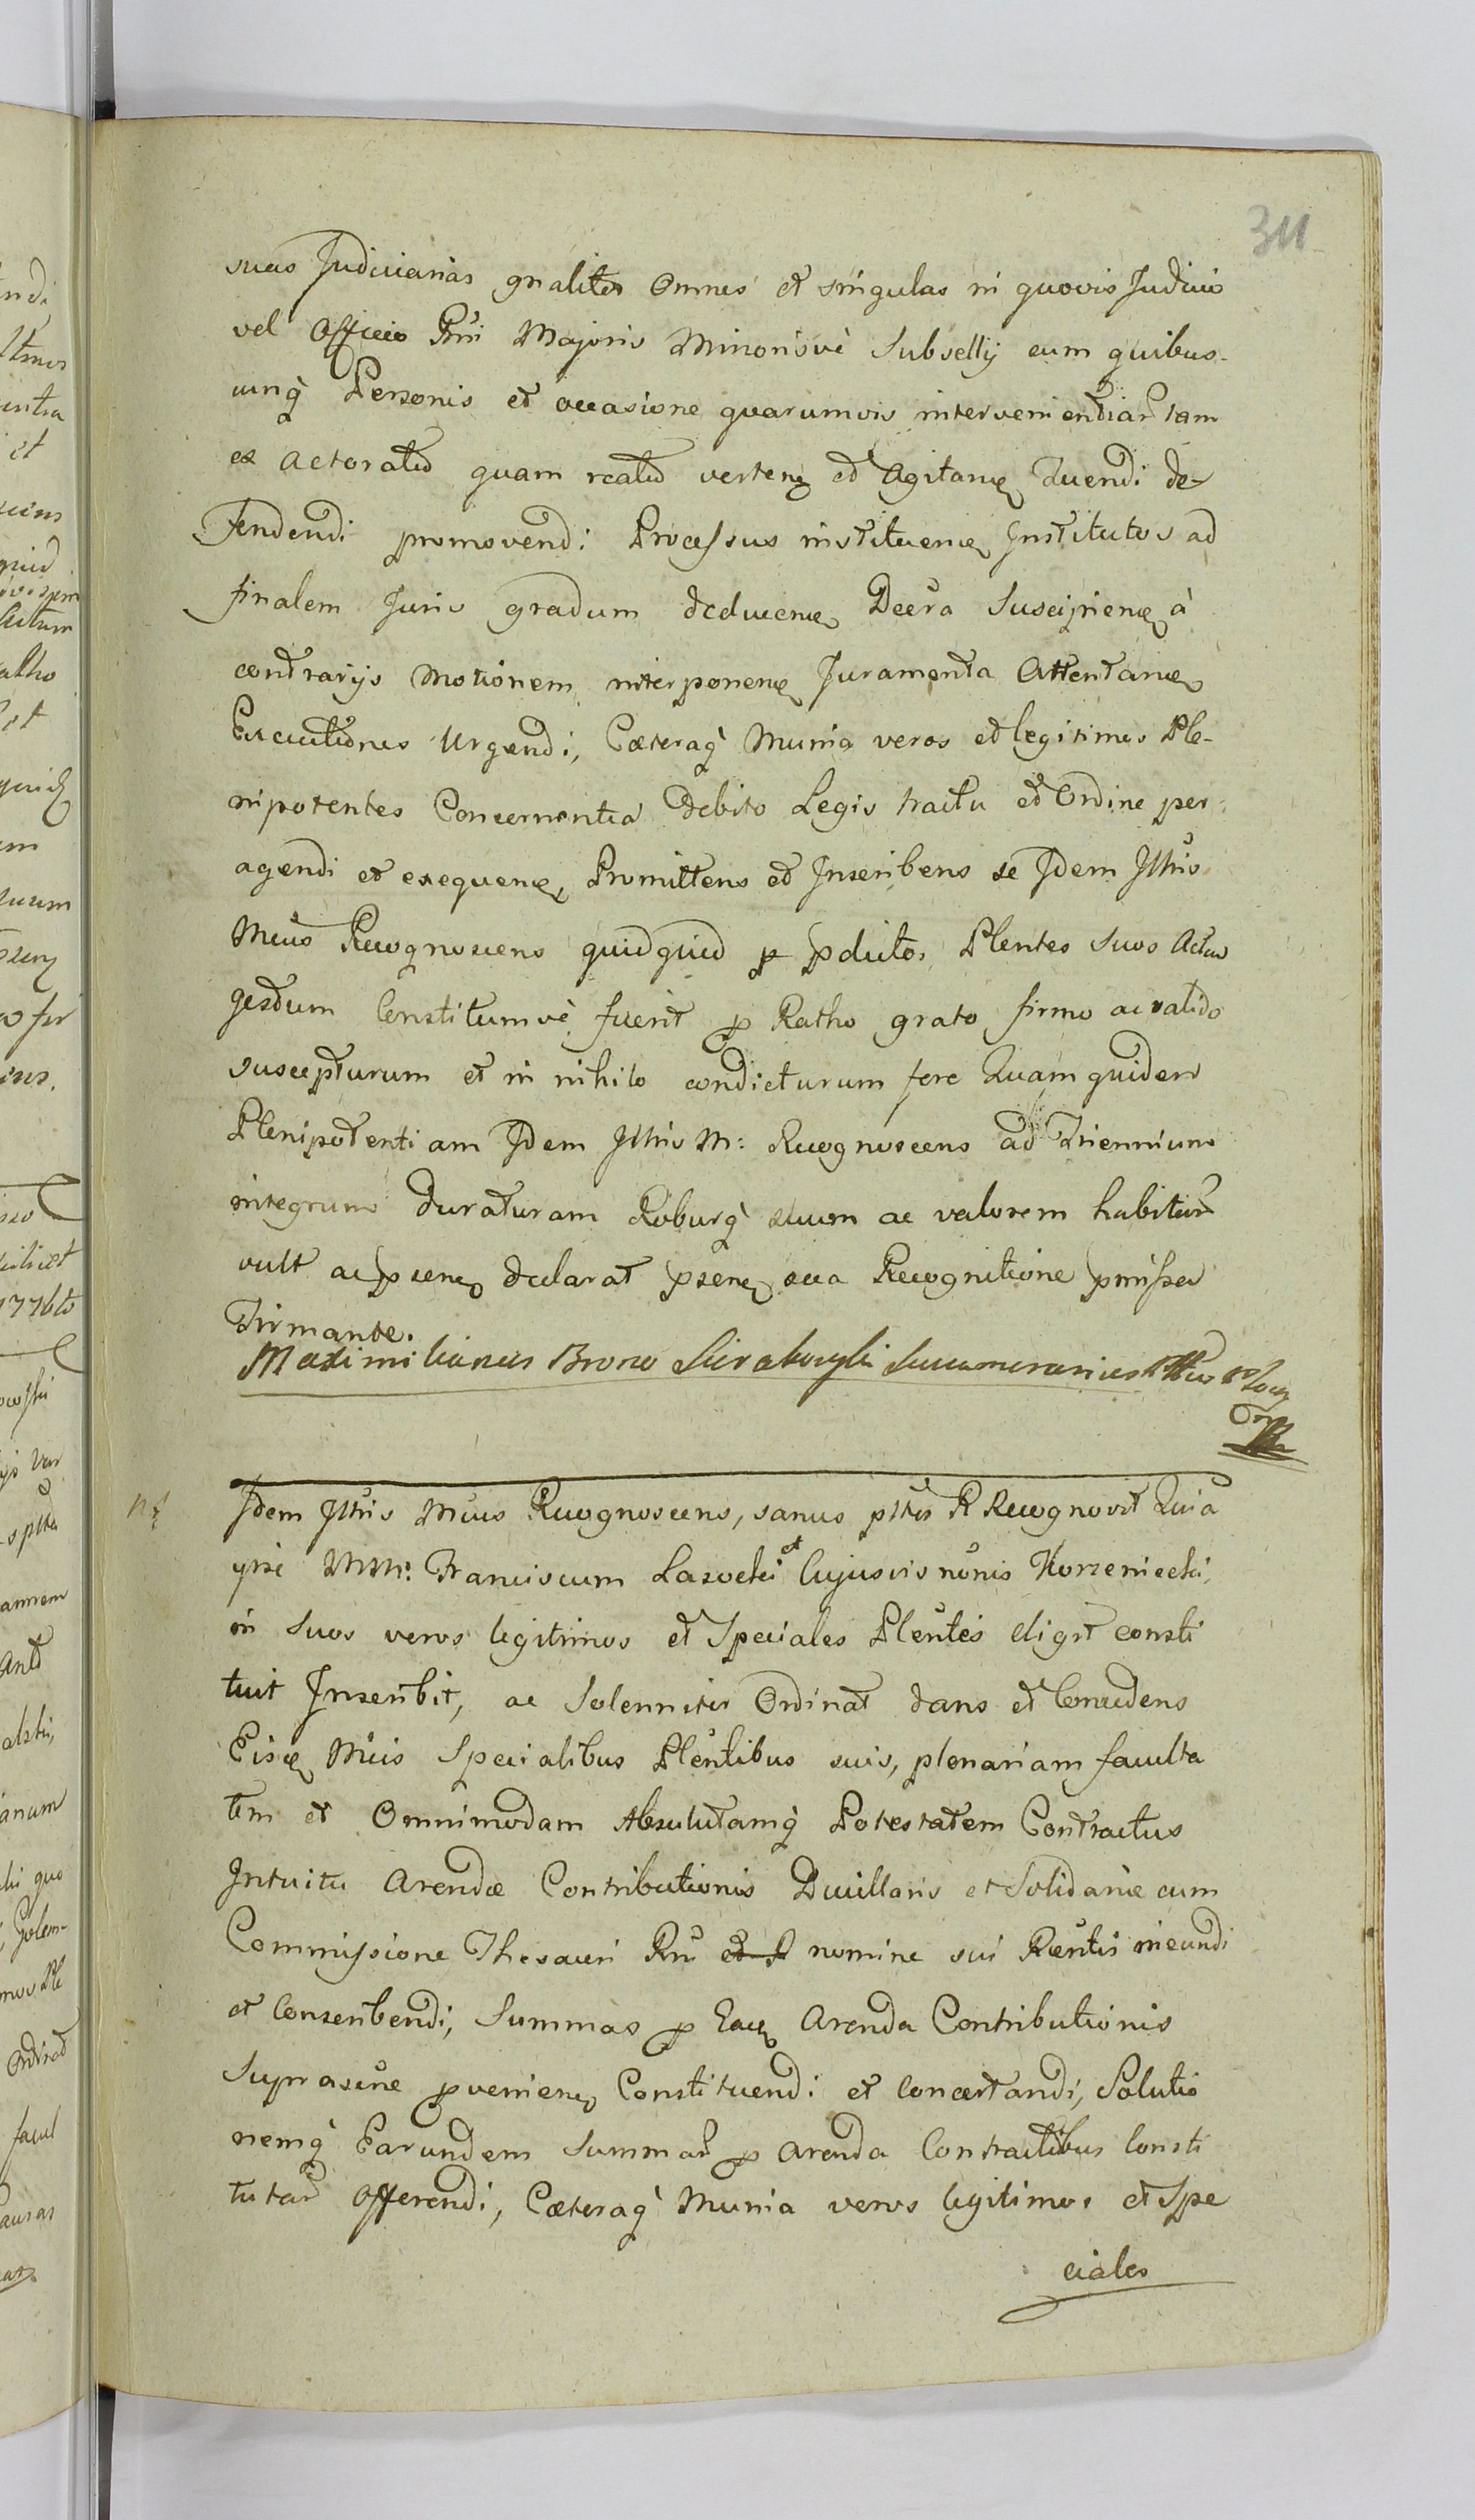 311
suas Judiciarias gnaliter Omnes et singulas in quovis Judicio
vel Officio Rni Majoris Minorisvè Subsellij cum quibus-
cunq̀ Personis et occasione quarumvis intervenientiar tam
ex actoratu quam reatu verteñ et Agitañ Tuendi de-
fendendi promovendi Processus instituenñ Institutos ad
finalem Juris gradum deducenñ Decra Suscipienñ à
contrarijs Motionem interponenñ Juramenta Attentanñ
Executiones Urgendi, Cæteraq̀ Munia veros et legitimos Ple-
nipotentes Concernentia debito Legis tractu et Ordine per-
agendi et exequenñ, Promittens et Inscribens se Idem Illris
Mcus Recognoscens quidquid p pductos Plentes Suos Actum
gestum Constitumvè fuerit p Ratho grato firmo ac valido
suscepturum et in nihilo condicturum fore Quam quidem
Plenipotentiam Idem Illris M: Recognoscens ad Triennium
integrum duraturam Roburq̀ suum ac valorem habitur
vult ac psenñ declarat psenñ sua Recognitione pmissa
Firmante.
Maximilianus Bronow Sierakowski Succamerarius
Idem Illris Mcus Recognoscens, sanus plter R Recognovit Quia
ipse MM: Franciscum Lasocki et Cujusvis nonis Korzeniecki,
in Suos veros legitimos et Speciales Plentes eligit consti
tuit Inscribit, ac Solenniter Ordinat dans et Concedens
Eisdñ Mcis Specialibus Plentibus suis, plenariam faculta
tem et Omnimodam Absolutamq̀ Potestatem Contractus
Intuitu Arendæ Contributionis Ducillaris et Solidariæ cum
Commissione Thesauri Rni nomine sui Rcentis ineundi
et Conscribendi, Summas p Arenda Contributionis
Suprascne pvenienñ Constituendi et Concertandi, Solutio
nemq̀ Earundem Summar p Arenda Contractibus Consti
tutar Offerendi, Cæteraq̀ Munia veros legitimos et Spe
ciales